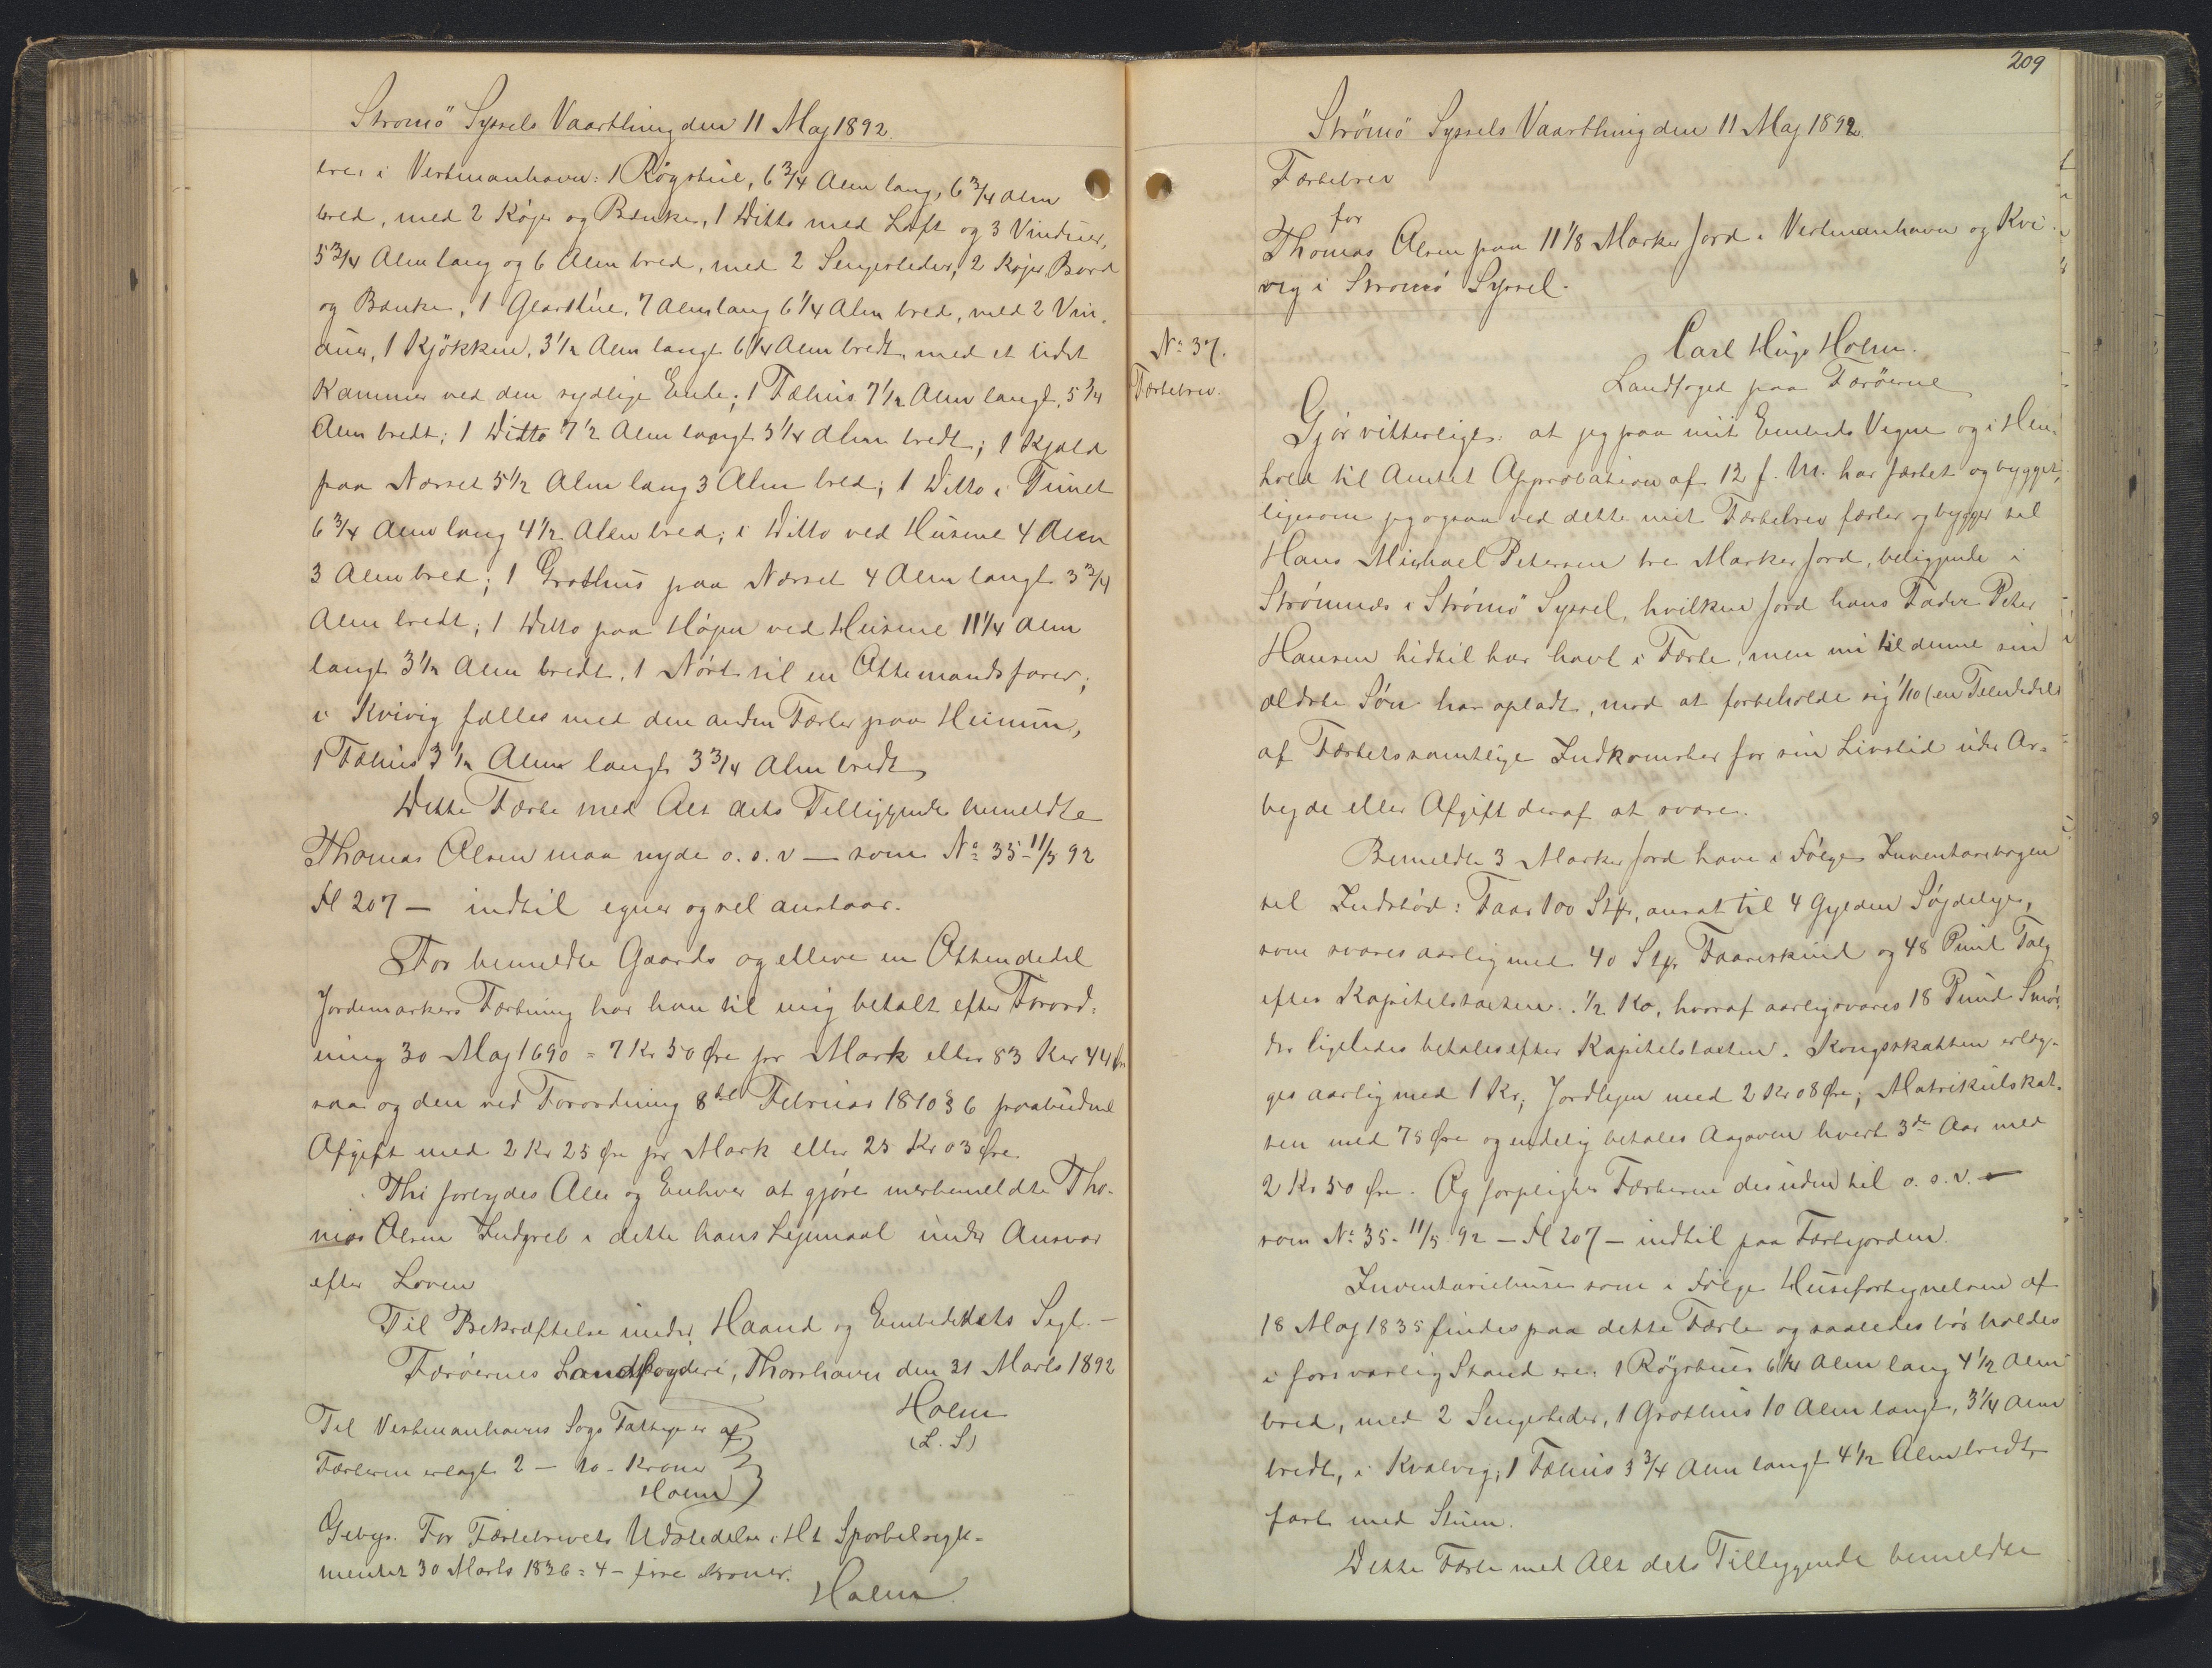 Strömö Syssels Vaarthing den 11 Maj 1892.
ere: i Vestmanhavn: 1 Røgstue, 6 3/4 Alen lang, 6 3/4 Alen
bred, med 2 Køjer og Bænke, 1 Ditto med Loft og 3 Vinduer,
5 3/4 Alen lang og 6 Alen bred, med 2 Sengesteder, 2 Køjer Bord
og Bænke, 1 Glasstue, 7 Alen lang 6 1/4 Alen bred, med 2 Vin-
duer, 1 Kjøkken, 3 1/2 Alen langt 6 1/4 Alen bredt, med et lidet
Kammer ved den sydlige Ende; 1 Fæhus 7 1/2 Alen langt, 5 3/4
Alen bredt; 1 Ditto 7 1/2 Alen langt 5 1/4 Alen bredt; 1 Kjald
paa Næsset 5 1/2 Alen lang 3 Alen bred; 1 Ditto i Tunet
6 3/4 Alen lang 4 1/2 Alen bred; 1 Ditto ved Husene 4 Alen
3 Alen bred; 1 Grothus paa Næsset 4 Alen langt 3 3/4
Alen bredt; 1 Ditto paa Høyen ved Husene 11 1/4 Alen
langt 3 1/2 Alen bredt. 1 Nøst til en Ottemandsfarer;
i Kvivig fælles med den anden Fæster paa Heimun,
1 Fæhus 3 1/2 Alen langt 3 3/4 Alen bredt
Dette Fæste med Alt dets Tilliggende bemeldte
Thomas Olsen maa nyde o.s.v — som No 35 - 11/5 92
Fl 207 — indtil egner og vel anstaar.
For bemeldte Gaards og elleve en Ottendedel
Jordemarkers Fæstning har han til mig betalt efter Forord-
ning 30 Maj 1690 = 7 Kr 50 Øre pr Mark eller 83 Kr 44 Ør
saa og den ved Forordning 8de Februar 1810 § 6 paabudne
Afgift med 2 Kr 25 Øre pr Mark eller 25 Kr 03 Øre.
Thi forbydes Alle og Enhver at gjøre merbemeldte Tho-
mas Olsen Indgreb i dette hans Lejemaal under Ansvar
efter Loven
Til Bekræftelse under Haand og Embedets Segl.—
Færøernes Landfogderi, Thorshavn den 31 Marts 1892
Holm
(L. S)
Til Vestmanhavns Sogs Fattige er af
Fæsteren erlagt 2 — to - Kroner
Holm
Gebyr. For Fæstebrevets Udstedelse i Ht Sportelregle-
mentet 30 Marts 1836 = 4 - fire Kroner.
Holm.
209
Strømø Syssels Vaarthing den 11 Maj 1892.
Fæstebrev
for
Thomas Olsen paa 11 1/8 Marker Jord i Vestmanhavn og Kvi-
vig i Strømø Syssel.
No 37.
Fæstebrev.
Carl Hugo Holm.
Landfoged paa Færøerne
Gjør vitterligt: at jeg paa mit Embeds Vegne og i Hen-
hold til Amtets Approbation af 12 f. M. har fæstet og bygget,
ligesom jeg ogsaa ved dette mit Fæstebrev fæster og bygger til
Hans Michael Petersen tre Marker Jord, beliggende i
Strømnæs i Strømø Syssel, hvilken Jord hans Fader Peter
Hansen hidtil har havt i Fæste, men nu til denne sin
ældste Søn har opladt, mod at forbeholde sig 1/10 (en Tiendedel)
af Fæstets samtlige Indkomster for sin Livstid uden Ar-
bejde eller Afgift deraf at svare.
Bemeldte 3 Marker Jord have i Følge Inventarebogen
til Indstød: Faar 100 Stkr, ansat til 4 Gylden Søjdelger,
som svares aarlig med 40 Stkr Faareskind og 48 Pund Talg
efter Kapitelstaxten. 1/2 Ko, hvoraf aarlig svares 18 Pund Smør,
der ligeledes betales efter Kapitelstaxten. Kongsskatten erlæg-
ges aarlig med 1 Kr; Jordlejen med 2 Kr 08 Øre; Matrikulskat-
ten med 75 Øre og endelig betales Aagaven hvert 3de Aar med
2 Kr 50 Øre. Og forpligtes Fæsteren desuden til o.s.v. —
som No 35 - 11/5 92 — Fl 207 — indtil paa Fæstejorden.
Inventariehuse som i Følge Husefortegnelsen af
18 Maj 1835 findes paa dette Fæste og saaledes bør holdes
i forsvarlig Stand ere: 1 Røgstue 6 1/4 Alen lang 4 1/2 Alen
bred, med 2 Sengesteder, 1 Grothus 10 Alen langt, 3 1/4 Alen
bredt, i Kvalvig; 1 Fæhus 3 3/4 Alen langt 4 1/2 Alen bredt
fast med Stuen.
Dette Fæste med Alt dets Tilliggende bemeldte